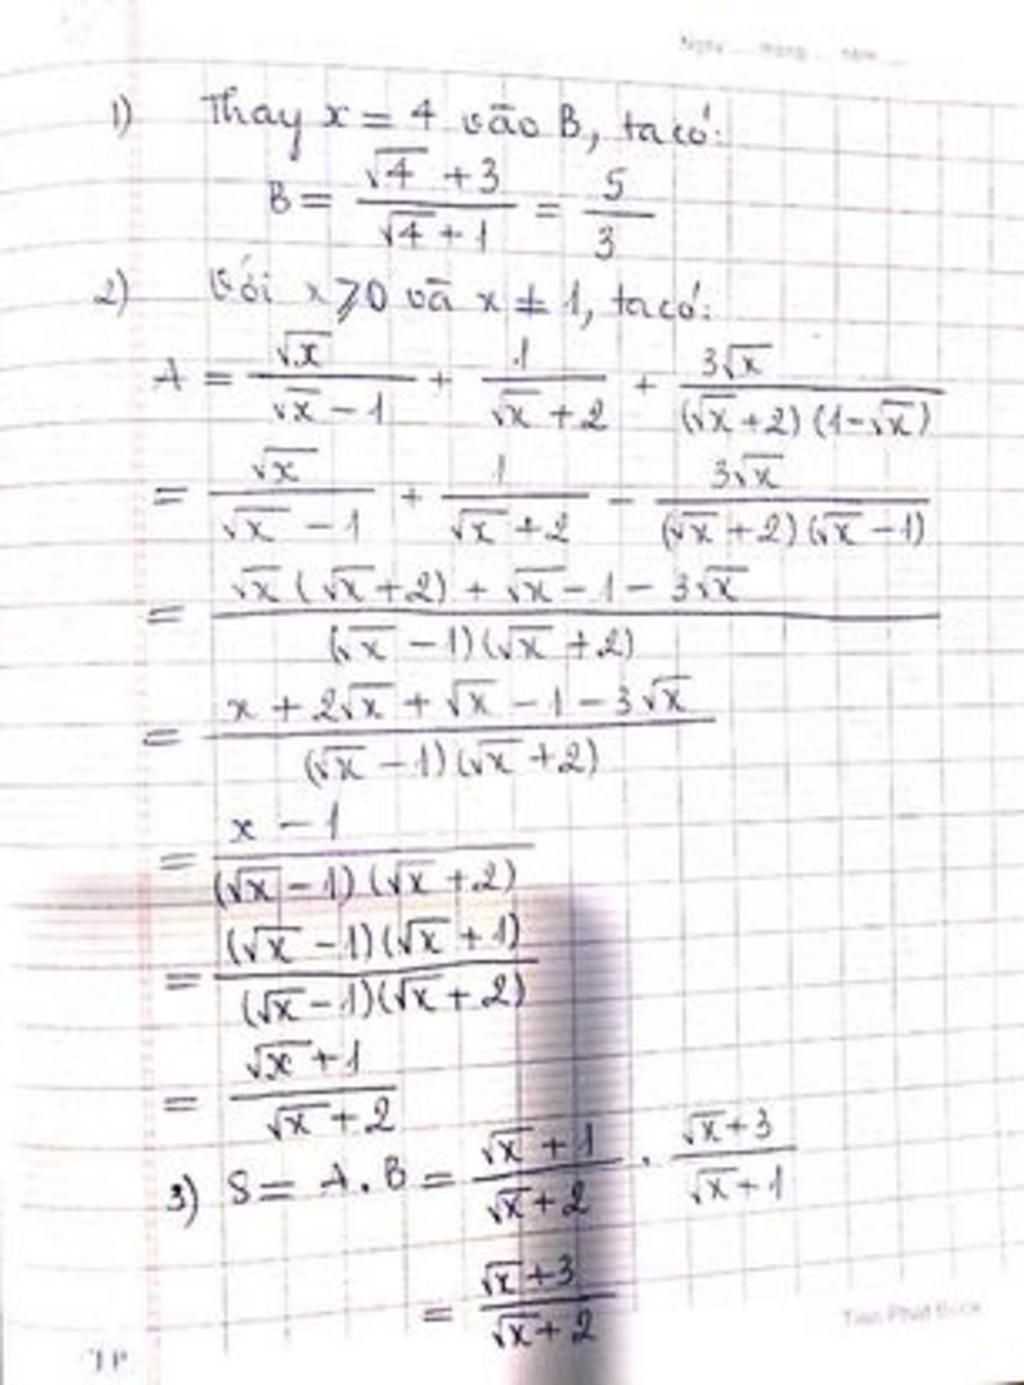 Ngày ... tháng ... năm ...
1) Thay x = 4 vào B, ta có:
B = (√4 + 3)/(√4 + 1) = 5/3
2) Với x ⩾ 0 và x ≠ 1, ta có:
A = √x/(√x - 1) + 1/(√x + 2) + 3√x/((√x + 2)(1 - √x))
= √x/(√x - 1) + 1/(√x + 2) - 3√x/((√x + 2)(√x - 1))
= (√x(√x + 2) + √x - 1 - 3√x)/((√x - 1)(√x + 2))
= (x + 2√x + √x - 1 - 3√x)/((√x - 1)(√x + 2))
= (x - 1)/((√x - 1)(√x + 2))
= ((√x - 1)(√x + 1))/((√x - 1)(√x + 2))
= (√x + 1)/(√x + 2)
3) S = A . B = (√x + 1)/(√x + 2) . (√x + 3)/(√x + 1)
= (√x + 3)/(√x + 2)